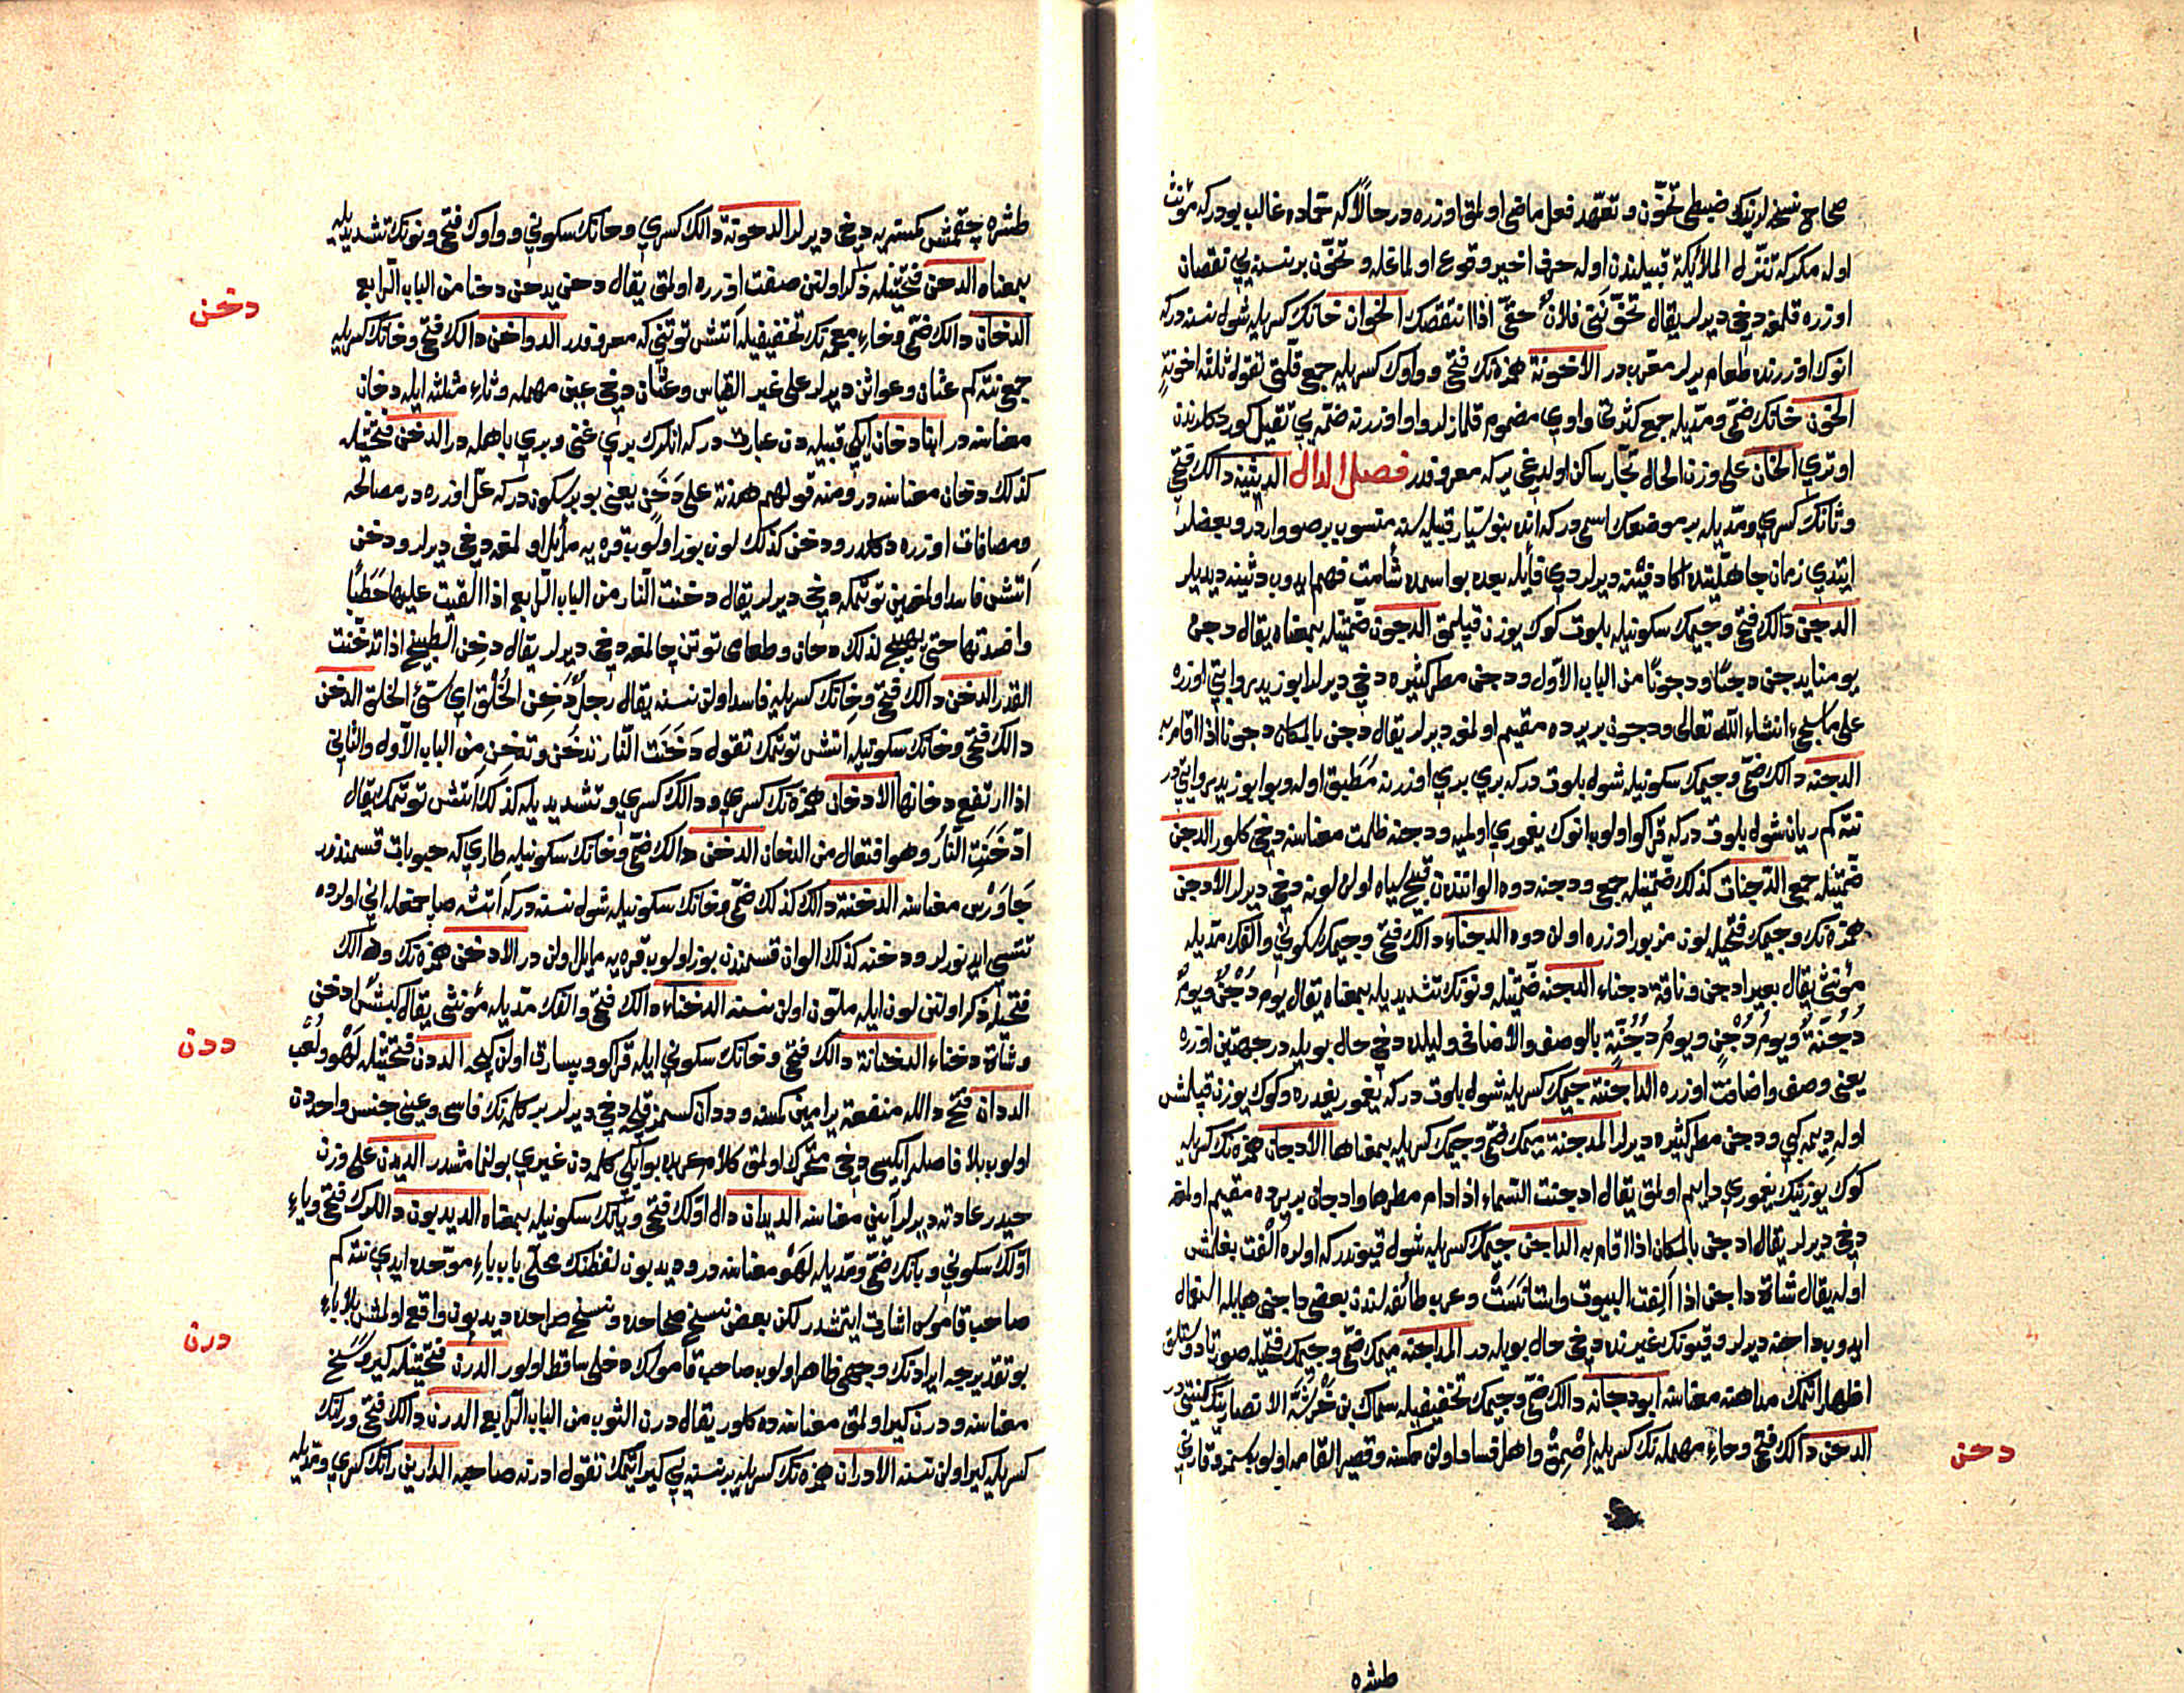 صحاح نسخه لرینك ضبطی تخوّن و تعهّد فعل ماضی اولمق اوزره در حالا که تخاده غالب بودر که مؤنث
اوله مکر که تنزّل الملائکة قبیلندن اوله حرف اخیر وقوع اولماغله و تخوّن بر نسنه یی نقصان
اوزره قلمغه دخی دیرلر یقال تخوّننی فلان حقّی اذا انتقصك الخوان خانك کسریله شول نسنه در که
انوك اوزرنده طعام یرلر معرّب در الاخونة همزه نك فتحی و واوك کسریله جمع قلّتی تقول ثلثة اخونةٍ
الخون خانك ضمّی و مدّیله جمع کثرتی واوی مضموم قلمازلر واو اوزرنه ضمّه یی ثقیل کوردکلرندن
اوتری الخان علی وزن الحال تجّار ساکن اولدیغی یر که معروفدر فصل الدال الدثینه دالك فتحی
و ثانك کسری و مدّیله بر موضعك اسمی در که انده بنو سیّار قبیله سنه منسوب بر صو واردر و بعضلر
ایتدی زمان جاهلیتده اکا دفینه دیرلردی قائله بعده بو اسمده شأمت فهم ایدوب دثینه دیدیلر
الدجن دالك فتحی و جیمك سکونیله بلوت کوك یوزن قپلمق الدجون ضمّتینله بمعناه یقال دجن
یومنا یدجن دجنًا و دجونًا من الباب الاوّل و دجن مطر کثیره دخی دیرلر ابو زید روایتی اوزره
علی ما سیجیء انشاء الله تعالی و دجون بر یرده مقیم اولمغه دیرلر یقال دجن بالمکان دجونا اذا اقام به
الدجنه دالك ضمّی و جیمك سکونیله شول بلوت در که بری بری اوزرنه مُطَبق اوله و بو ابو زید روایتی در
نته کم ریان شول بلوت در که قراکو اولوب انوك یغموری اولمیه و دجنه ظلمت معناسنه دخی کلور الدجن
ضمّتینله جمعی الدّجنات کذلك ضمّتینله جمعی و دجنه دوه الوانندن قبیح سیاه اولن لونه دخی دیرلر الادجن
همزه نك و جیمك فتحیله لون مزبور اوزره اولن دوه الدجناء دالك فتحی و جیمك سکونی و الفك مدّیله
مؤنثی یقال بعیر ادجن و ناقة دجناء الدجنه ضمّتینله و نونك تشدیدیله بمعناه یقال یوم دُجُنٌّ و یومٌ
دُجُنّةٌ و یومُ دُجْنٍ و یومُ دُجُنّةٍ بالوصف و الاضافه و لیلده دخی حال بویله در جهتین اوزره
یعنی وصف و اضافت اوزره الداجنة جیمك کسریله شول بلوت در که یغمور یغدره و کوك یوزن قپلمش
اوله دیمه کبی و دجن مطر کثیره دیرلر المدجنة میمك ضمّی و جیمك کسریله بمعناها الادجان همزه نك کسریله
کوك یوزینك یغموری دایم اولمق یقال ادجنت السّماء اذا دام مطرها و ادجان بر یرده مقیم اولمغه
دخی دیرلر یقال ادجن بالمکان اذا اقام به الداجن جیمك کسریله شول قیوندر که اولره اُلفت بغلمش
اوله یقال شاة داجن اذا اَلِفت البیوت و استانَسَتْ و عرب طائفه لندن بعضی داجنی هایله استعمال
ایدوب داجنه دیرلر و قیونك غیرنده دخی حال بویله در المداجنه میمك ضمّی و جیمك فتحیله صورتا دوستلق
اظهار اتمك مداهنه معناسنه ابو دجانه دالك ضمّی و جیمك تخفیفیله سماك بن خَرَشَة الانصارینك کنیتی در
الدحن دالك فتحی و حاءِ مهمله نك کسریله و اهل فساد اولن کمسنه و قصیر القامه اولوب سمز و قارنی
دحن
طشره
طشره چقمش کمسنه یه دخی دیرلر الدحونة دالك کسری و حانك سکونی و واوك فتحی و نونك تشدیدیله
بمعناه الدحن فتحتینله ذکر اولنن صفت اوزره اولمق یقال دحن یدحن دحنا من الباب الرّابع
الدخان دالك ضمّی و خاءِ معجمه نك تخفیفیله آتش توتنی که معروفدر الدواخن دالك فتحی و خانك کسریله
جمعی نته کم عثان و عواثن دیرلر علی غیر القیاس و عثان دخی عین مهمله و ثاءِ مثلثه ایله دخان
معناسنه در ابنا دخان ایکی قبیله دن عبارت در که انلرك بری غنی و بری باهله در الدخن فتحتینله
کذلك دخان معناسنه در و منه قولهم هدنة علی دَخَنٍ یعنی بو بر سکوندر که غلّ اوزره در مصالحه
و مصافات اوزره دکلدر و دخن کذلك لون بوز اولوب قره یه مائل اولمغه دخی دیرلر و دخن
آتش فاسد اولمغین توتمکه دخی دیرلر یقال دخنت النّار من الباب الرّابع اذا القیت علیها حَطَبًا
و افسدتها حتی یهیج لذلك دخان و طعامی توتن چالمغه دخی دیرلر یقال دخِن الطبیخ اذا تدخّنت
القدر الدخن دالك فتحی و خانك کسریله فاسد اولن نسنه یقال رجلٌ دَخِن الخُلق ای سیّئ الخلق الدخن
دالك فتحی و خانك سکونیله آتش توتمك تقول دَخَنَت النّار تدخُن و تدخِن من الباب الاوّل و الثانی
اذا ارتفع دخانها الادخان همزه نك کسری و دالك کسری و تشدیدیله کذلك آتش توتمك یقال
ادّخَنَتِ النّارُ و هو افتعال من الدخان الدخن دالك ضمّی و خانك سکونیله طاری که حبوبات قسمندندر
جَاوَرْس معناسنه الدخنة دالك کذلك ضمّی و خانك سکونیله شول نسنه در که آتشه صاچمغله انی اولرده
تتسی ایدنورلر و دخنه کذلك الوان قسمندن بوز اولوب قره یه مایل اولن در الادخن همزه نك و خانك
فتحیله ذکر اولنن لون ایله ملوّن اولن نسنه الدخناء دالك فتحی و الفك مدّیله مؤنثی یقال کبش ادخن
و شاة دخناء الدخنانة دالك فتحی و خانك سکونی ایله قراکو و پسارق اولن کیجه الددن فتحتینله لَهْو و لُعْب
الددان فتح دالله منفعة یرامین کسنه و ددان کسمز قلجه دخی دیرلر بر کلمه نك فاسی و عینی جنس واحددن
اولوب بلا فاصله ایکیسی دخی متحرّك اولمق کلام عربده بو ایکی کلمه دن غیری بولنمامشدر الدیدن علی وزن
حیدر عادته دیرلر آیین معناسنه الدیدان دال اوّلك فتحی و یانك سکونیله بمعناه الدیدبون دالك فتحی و یاءِ
اوّلك سکونی و بانك ضمّی و مدّیله لَهْو معناسنه در و دیدبون لفظنك محلّی باب باءِ موحّده ایدی نته کم
صاحب قاموس اشارت ایتمشدر لکن بعض نسخ صحاحده و نسخ صراحده دیدبون واقع اولمش بلا باءِ
بو تقدیرجه ایرادنك وجهی ظاهر اولوب صاحب قاموسك دخلی ساقط اولور الدرن فتحتینله کیر وَسَخ
معناسنه و درن کیر اولمق معناسنه ده کلور یقال درن الثوب من الباب الرّابع الدرن دالك فتحی و رانك
کسریله کیر اولن نسنه الادران همزه نك کسریله بر نسنه یی کیر اتمك تقول ادرنه صاحبه الدارین رانك کسری و مدّیله
دخن
ددن
درن